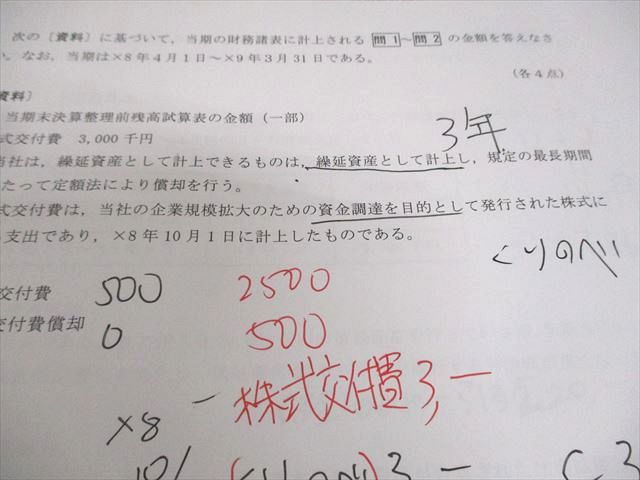 次の〔資料〕に基づいて，当期の財務諸表に計上される 問1～問2 の金額を答えなさ
い。なお，当期は×8年4月1日～×9年3月31日である。
（各4点）
資料〕
当期末決算整理前残高試算表の金額（一部）
式交付費 3,000千円
3年
当社は，繰延資産として計上できるものは，繰延資産として計上し，規定の最長期間
たって定額法により償却を行う。
式交付費は，当社の企業規模拡大のための資金調達を目的として発行された株式に
支出であり，×8年10月1日に計上したものである。
くりのべ
交付費 500 2500
交付費償却 0 500
株式交付費 3,―
×8
10/ (くりのべ) 3 ― C 3